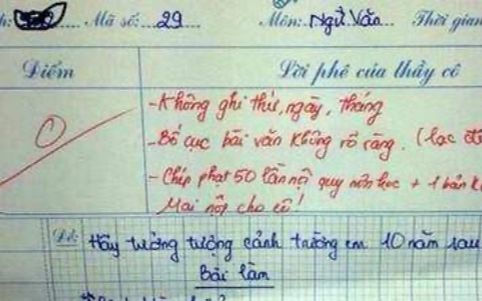 Mã số: 29 Môn: Ngữ Văn Thời gian
Điểm Lời phê của thầy cô
0
- Không ghi thứ, ngày, tháng
- Bố cục bài văn không rõ ràng. (lạc đề
- Chép phạt 50 lần nội quy môn học + 1 bản k
Mai nộp cho cô!
Đề: Hãy tưởng tượng cảnh trường em 10 năm sau
Bài làm